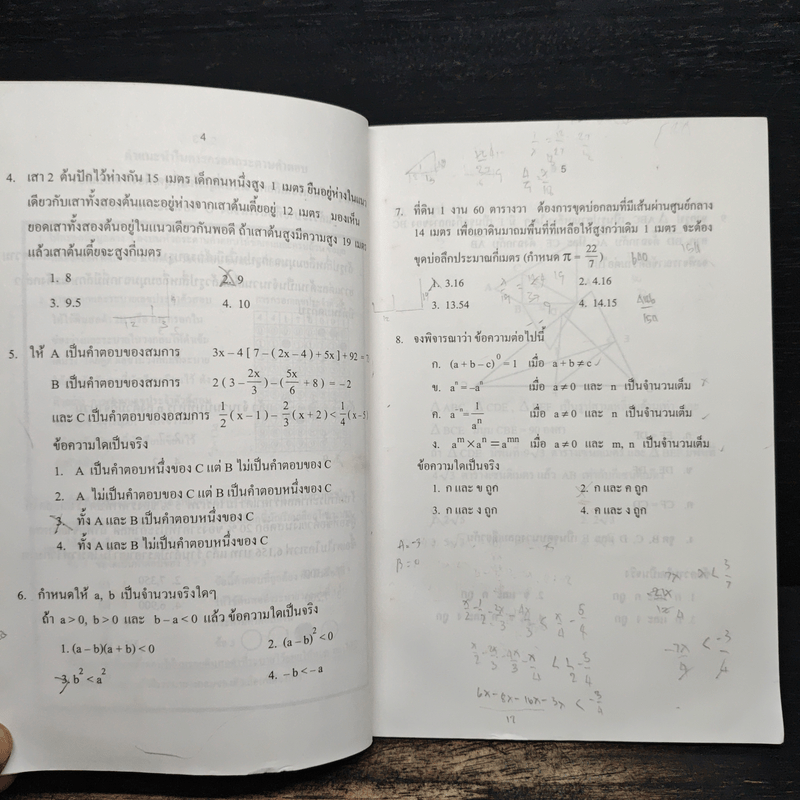 4
4. เสา 2 ต้นปักไว้ห่างกัน 15 เมตร เด็กคนหนึ่งสูง 1 เมตร ยืนอยู่ห่างในแนว
เดียวกับเสาทั้งสองต้นและอยู่ห่างจากเสาต้นเตี้ยอยู่ 12 เมตร มองเห็น
ยอดเสาทั้งสองต้นอยู่ในแนวเดียวกันพอดี ถ้าเสาต้นสูงมีความสูง 19 เมตร
แล้วเสาต้นเตี้ยจะสูงกี่เมตร
1. 8 2. 9
3. 9.5 4. 10
5. ให้ A เป็นคำตอบของสมการ 3x – 4 [ 7 – ( 2x – 4 ) + 5x ] + 92 =
B เป็นคำตอบของสมการ 2 ( 3 – 2x/3 ) – ( 5x/6 + 8 ) = –2
และ C เป็นคำตอบของอสมการ 1/2 ( x – 1 ) – 2/3 ( x + 2 ) < 1/4 ( x – 5 )
ข้อความใดเป็นจริง
1. A เป็นคำตอบหนึ่งของ C แต่ B ไม่เป็นคำตอบของ C
2. A ไม่เป็นคำตอบของ C แต่ B เป็นคำตอบหนึ่งของ C
3. ทั้ง A และ B เป็นคำตอบหนึ่งของ C
4. ทั้ง A และ B ไม่เป็นคำตอบหนึ่งของ C
6. กำหนดให้ a, b เป็นจำนวนจริงใดๆ
ถ้า a > 0, b > 0 และ b – a < 0 แล้ว ข้อความใดเป็นจริง
1. (a – b)(a + b) < 0 2. (a – b)² < 0
3. b² < a² 4. – b < – a
5
7. ที่ดิน 1 งาน 60 ตารางวา ต้องการขุดบ่อกลมที่มีเส้นผ่านศูนย์กลาง
14 เมตร เพื่อเอาดินมาถมพื้นที่ที่เหลือให้สูงกว่าเดิม 1 เมตร จะต้อง
ขุดบ่อลึกประมาณกี่เมตร (กำหนด π = 22/7 )
1. 3.16 2. 4.16
3. 13.54 4. 14.15
8. จงพิจารณาว่า ข้อความต่อไปนี้
ก. (a + b – c)⁰ = 1 เมื่อ a + b ≠ c
ข. aⁿ = –aⁿ เมื่อ a ≠ 0 และ n เป็นจำนวนเต็ม
ค. a⁻ⁿ = 1/aⁿ เมื่อ a ≠ 0 และ n เป็นจำนวนเต็ม
ง. aᵐ × aⁿ = aᵐⁿ เมื่อ a ≠ 0 และ m, n เป็นจำนวนเต็ม
ข้อความใดเป็นจริง
1. ก และ ข ถูก 2. ก และ ค ถูก
3. ก และ ง ถูก 4. ค และ ง ถูก